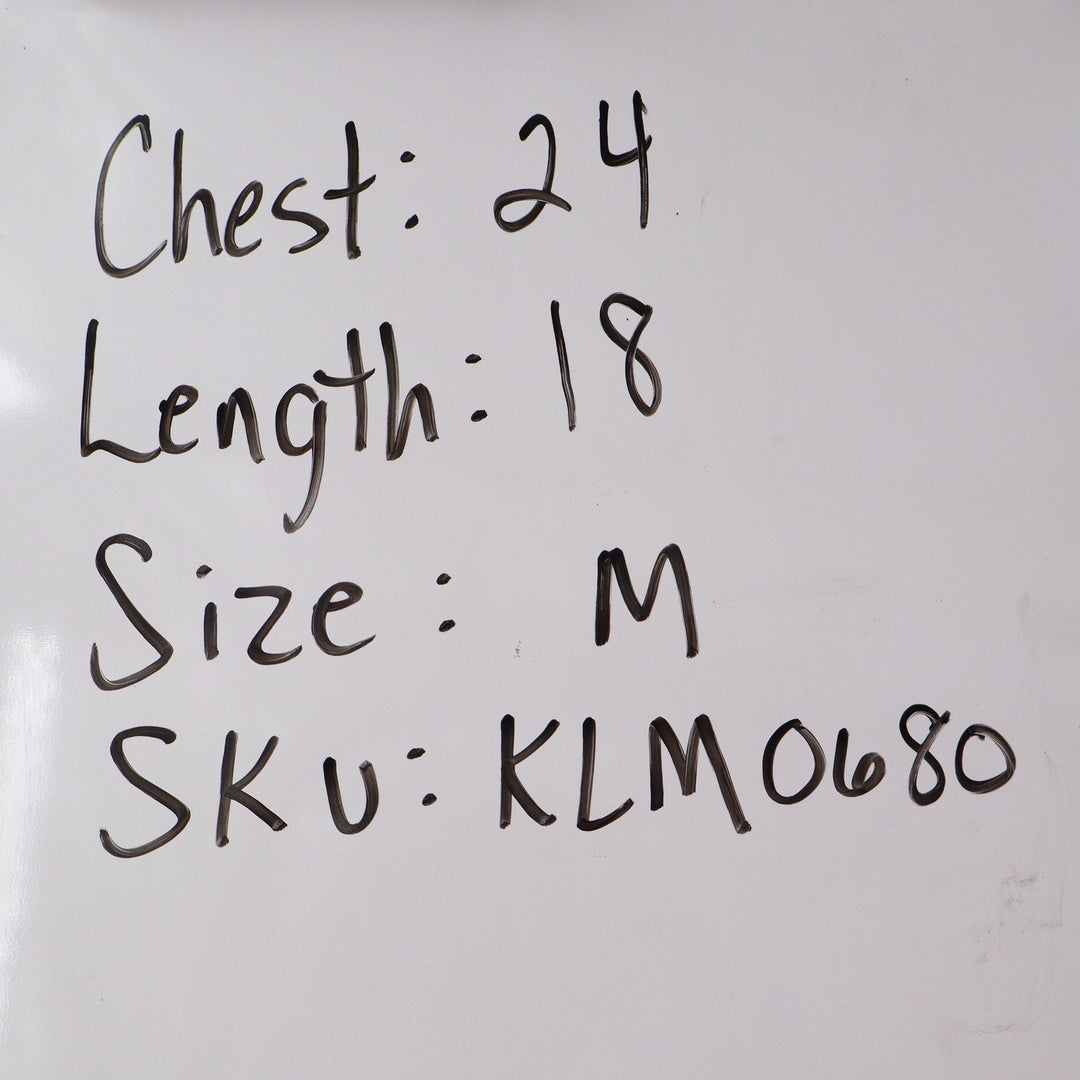 Chest: 24
Length: 18
Size: M
SKU: KLM0680